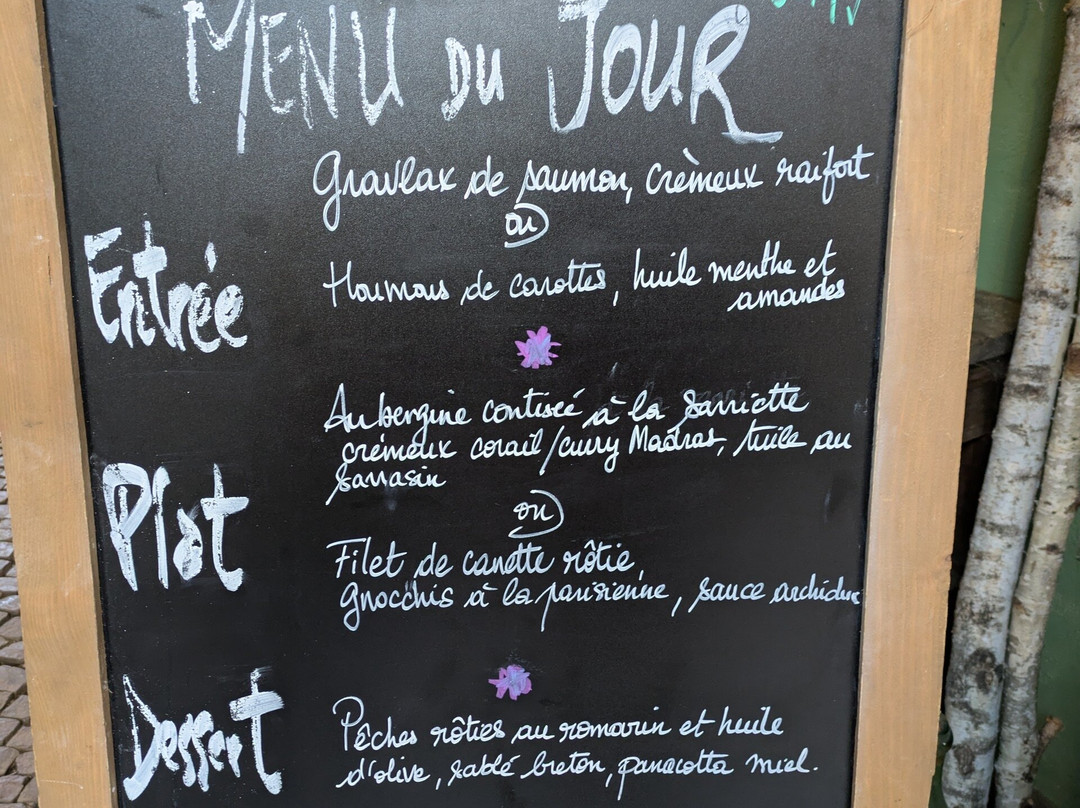 MENU DU JOUR
Gravlax de saumon, crèmeux raifort
ou
Entrée
Houmous de carottes, huile menthe et
amandes
Aubergine contisée à la sarriette
crémeux corail/curry Madras, tuile au
sarrasin
Plat
ou
Filet de canette rôtie,
gnocchis à la parisienne, sauce archiduc
Dessert
Pêches rôties au romarin et huile
d'olive, sablé breton, panacotta miel.